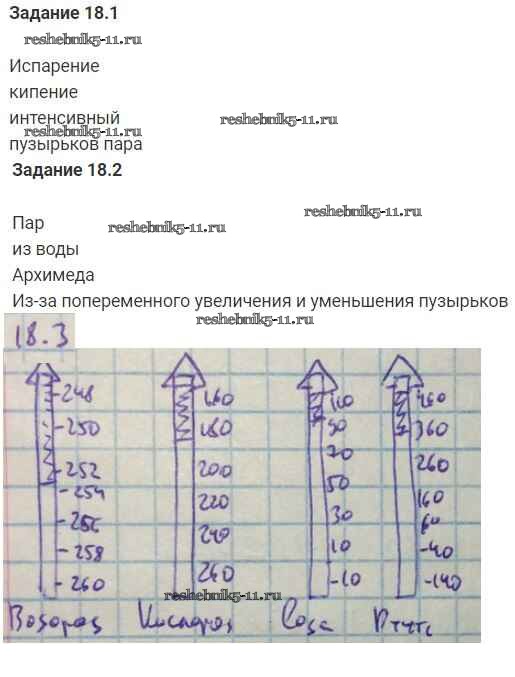 Задание 18.1
reshebnik5-11.ru
Испарение
кипение
интенсивный
reshebnik5-11.ru
reshebnik5-11.ru
пузырьков пара
Задание 18.2
reshebnik5-11.ru
Пар
reshebnik5-11.ru
из воды
Архимеда
Из-за попеременного увеличения и уменьшения пузырьков
reshebnik5-11.ru
18.3
-248
-250
-252
-254
-256
-258
-260
160
180
200
220
240
260
110
90
70
50
30
10
-10
460
360
260
160
60
-40
-140
reshebnik5-11.ru
Водород Кислород Вода Ртуть